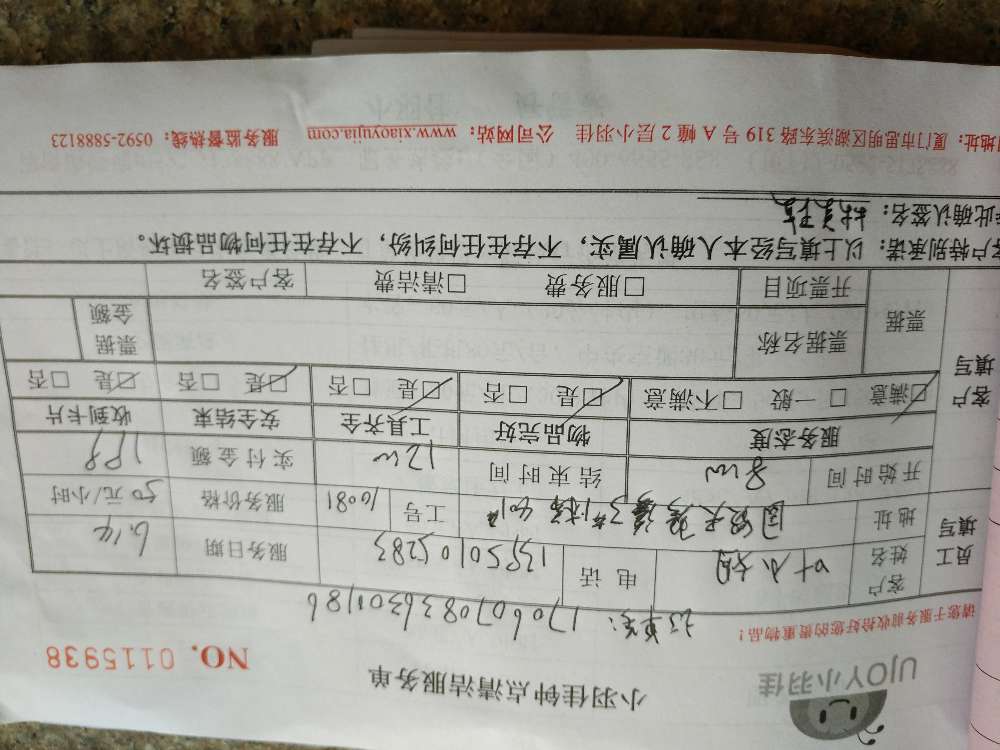 UJOY小羽佳
小羽佳钟点清洁服务单
NO. 0115938
请您于服务前收拾好您的贵重物品!
1706070836300186
员工填写
客户姓名
叶小姐
电话
13950105283
服务日期
6.14
地址
工号
16081
服务价格
50元/小时
开始时间
8:00
结束时间
12:00
实付金额
188
客户填写
服务态度
物品完好
工具齐全
安全结束
收到卡片
☑满意 □一般 □不满意
☑是 □否
☑是 □否
☑是 □否
☑是 □否
票据
票据名称
票据金额
开票项目
□服务费 □清洁费
客户签名
客户特别承诺:以上填写经本人确认,实属,不存在任何纠纷,不存在任何物品损坏。
此确认签名:
地址:厦门市思明区湖滨东路319号A幢2层小羽佳 公司网站:www.xiaoyujia.com 服务监督热线:0592-5888123